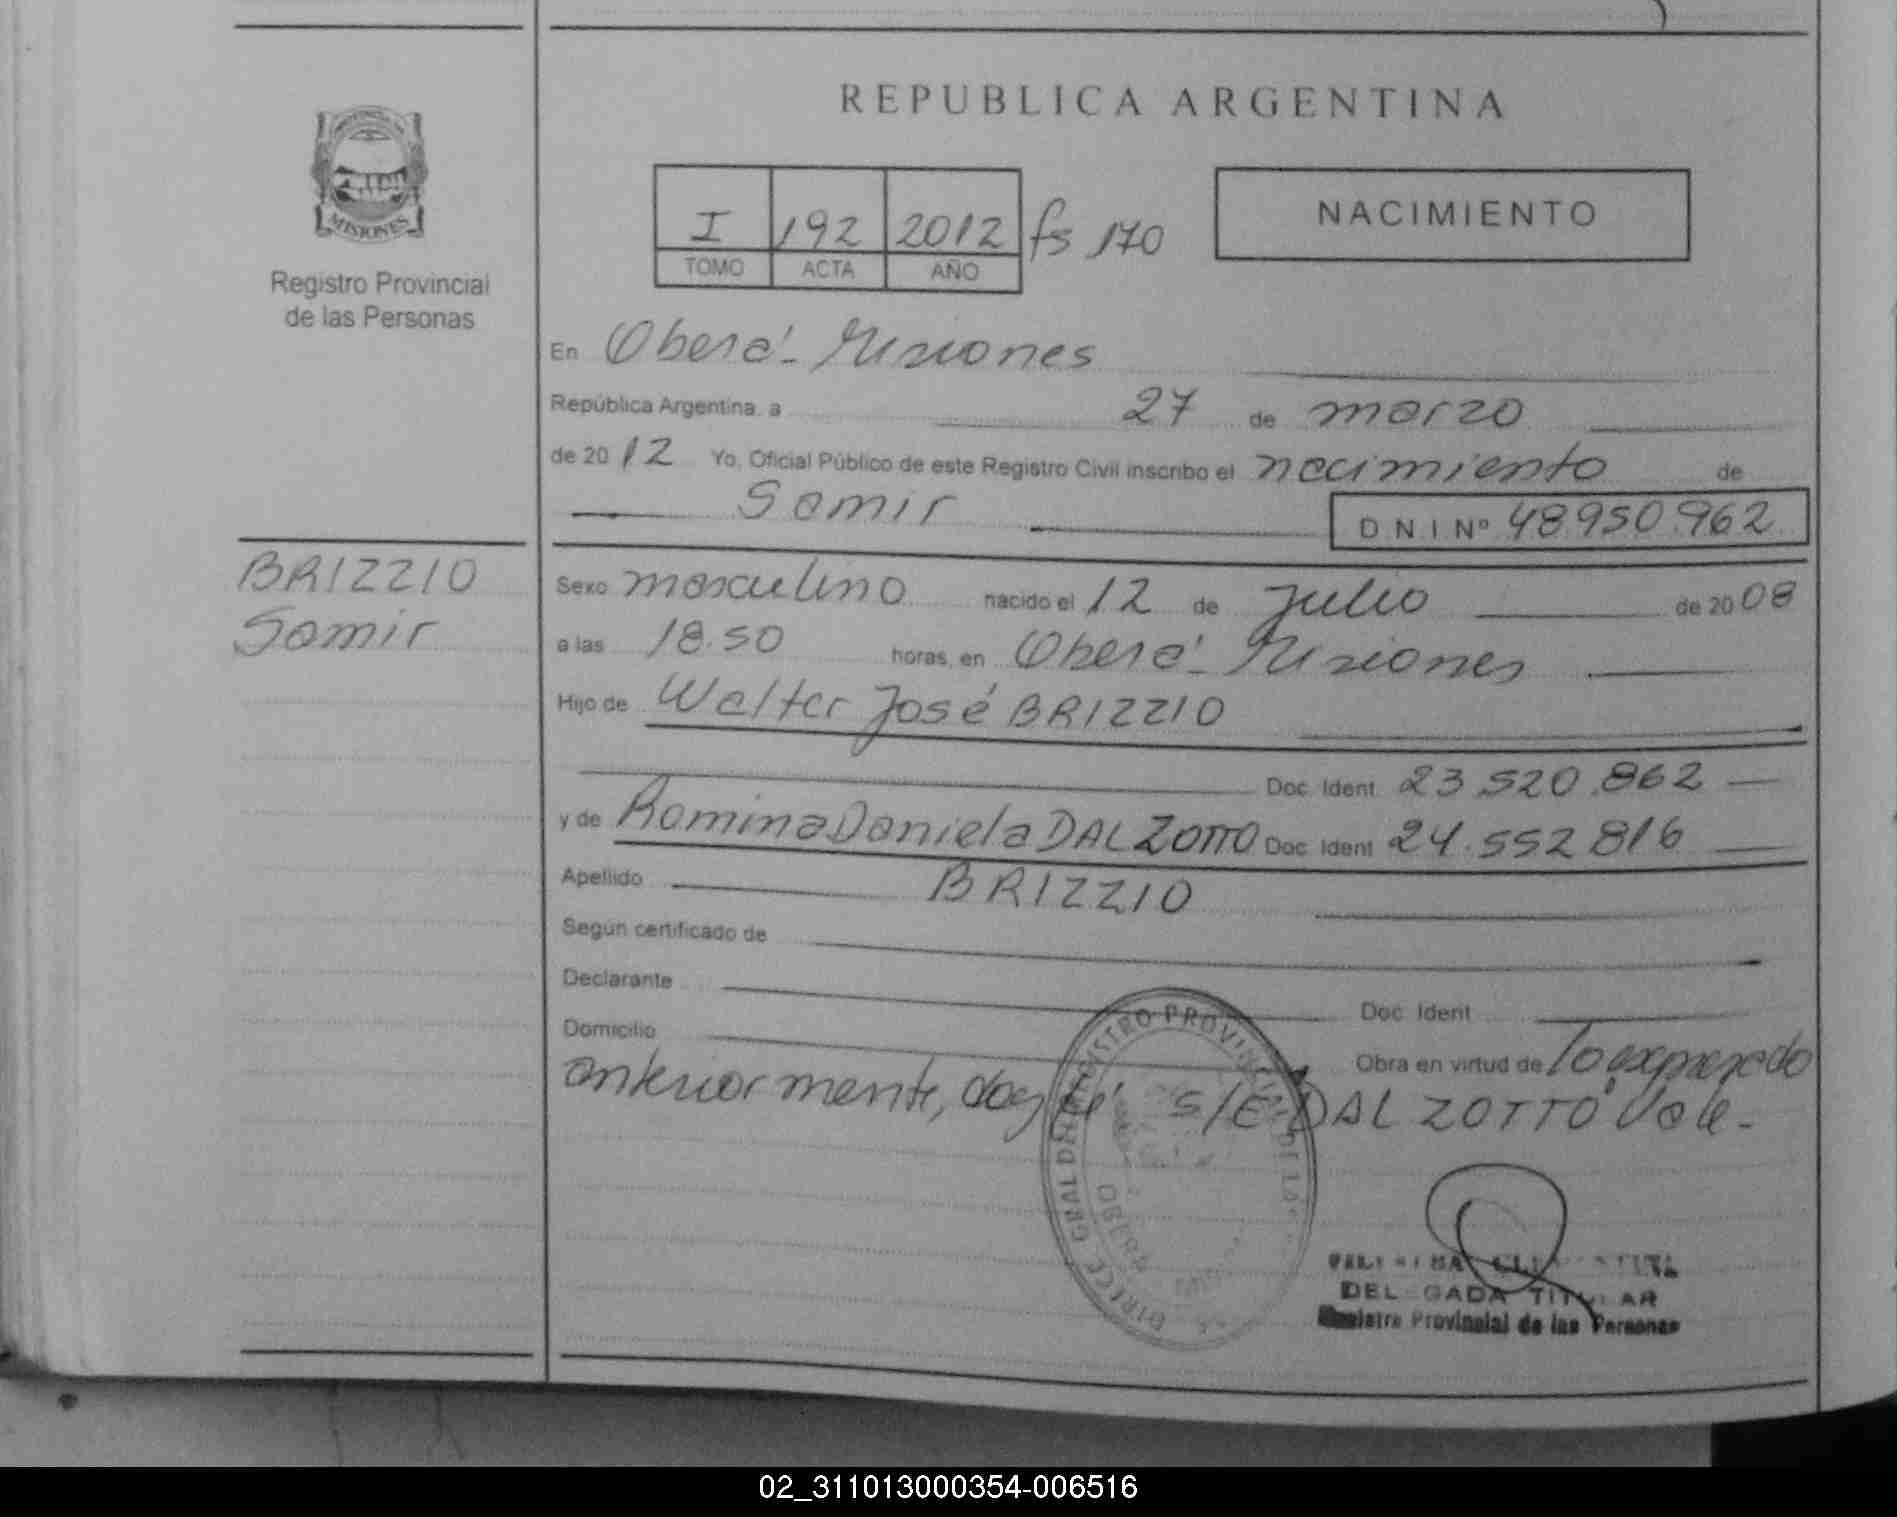 REPUBLICA ARGENTINA
MISIONES
Registro Provincial
de las Personas
I 192 2012 fs 170
TOMO ACTA AÑO
NACIMIENTO
En Oberá - Misiones
República Argentina, a 27 de marzo
de 2012 Yo, Oficial Público de este Registro Civil inscribo el nacimiento de
Samir D N I Nº 48.950.962
BRIZZIO
Samir
Sexo masculino nacido el 12 de Julio de 2008
a las 18.50 horas, en Oberá - Misiones
Hijo de Walter José BRIZZIO
Doc. Ident. 23.520.862
y de Romina Daniela DAL ZOTTO Doc. Ident 24.552.816
Apellido BRIZZIO
Según certificado de
Declarante Doc. Ident
Domicilio Obra en virtud de lo expresado
anteriormente, doy fé S/E DAL ZOTTO Vale -
DIRECC. GRAL DEL REGISTRO PROVINCIAL DE LAS
OBERA
DELEGADA TITULAR
Registro Provincial de las Personas
02_311013000354-006516